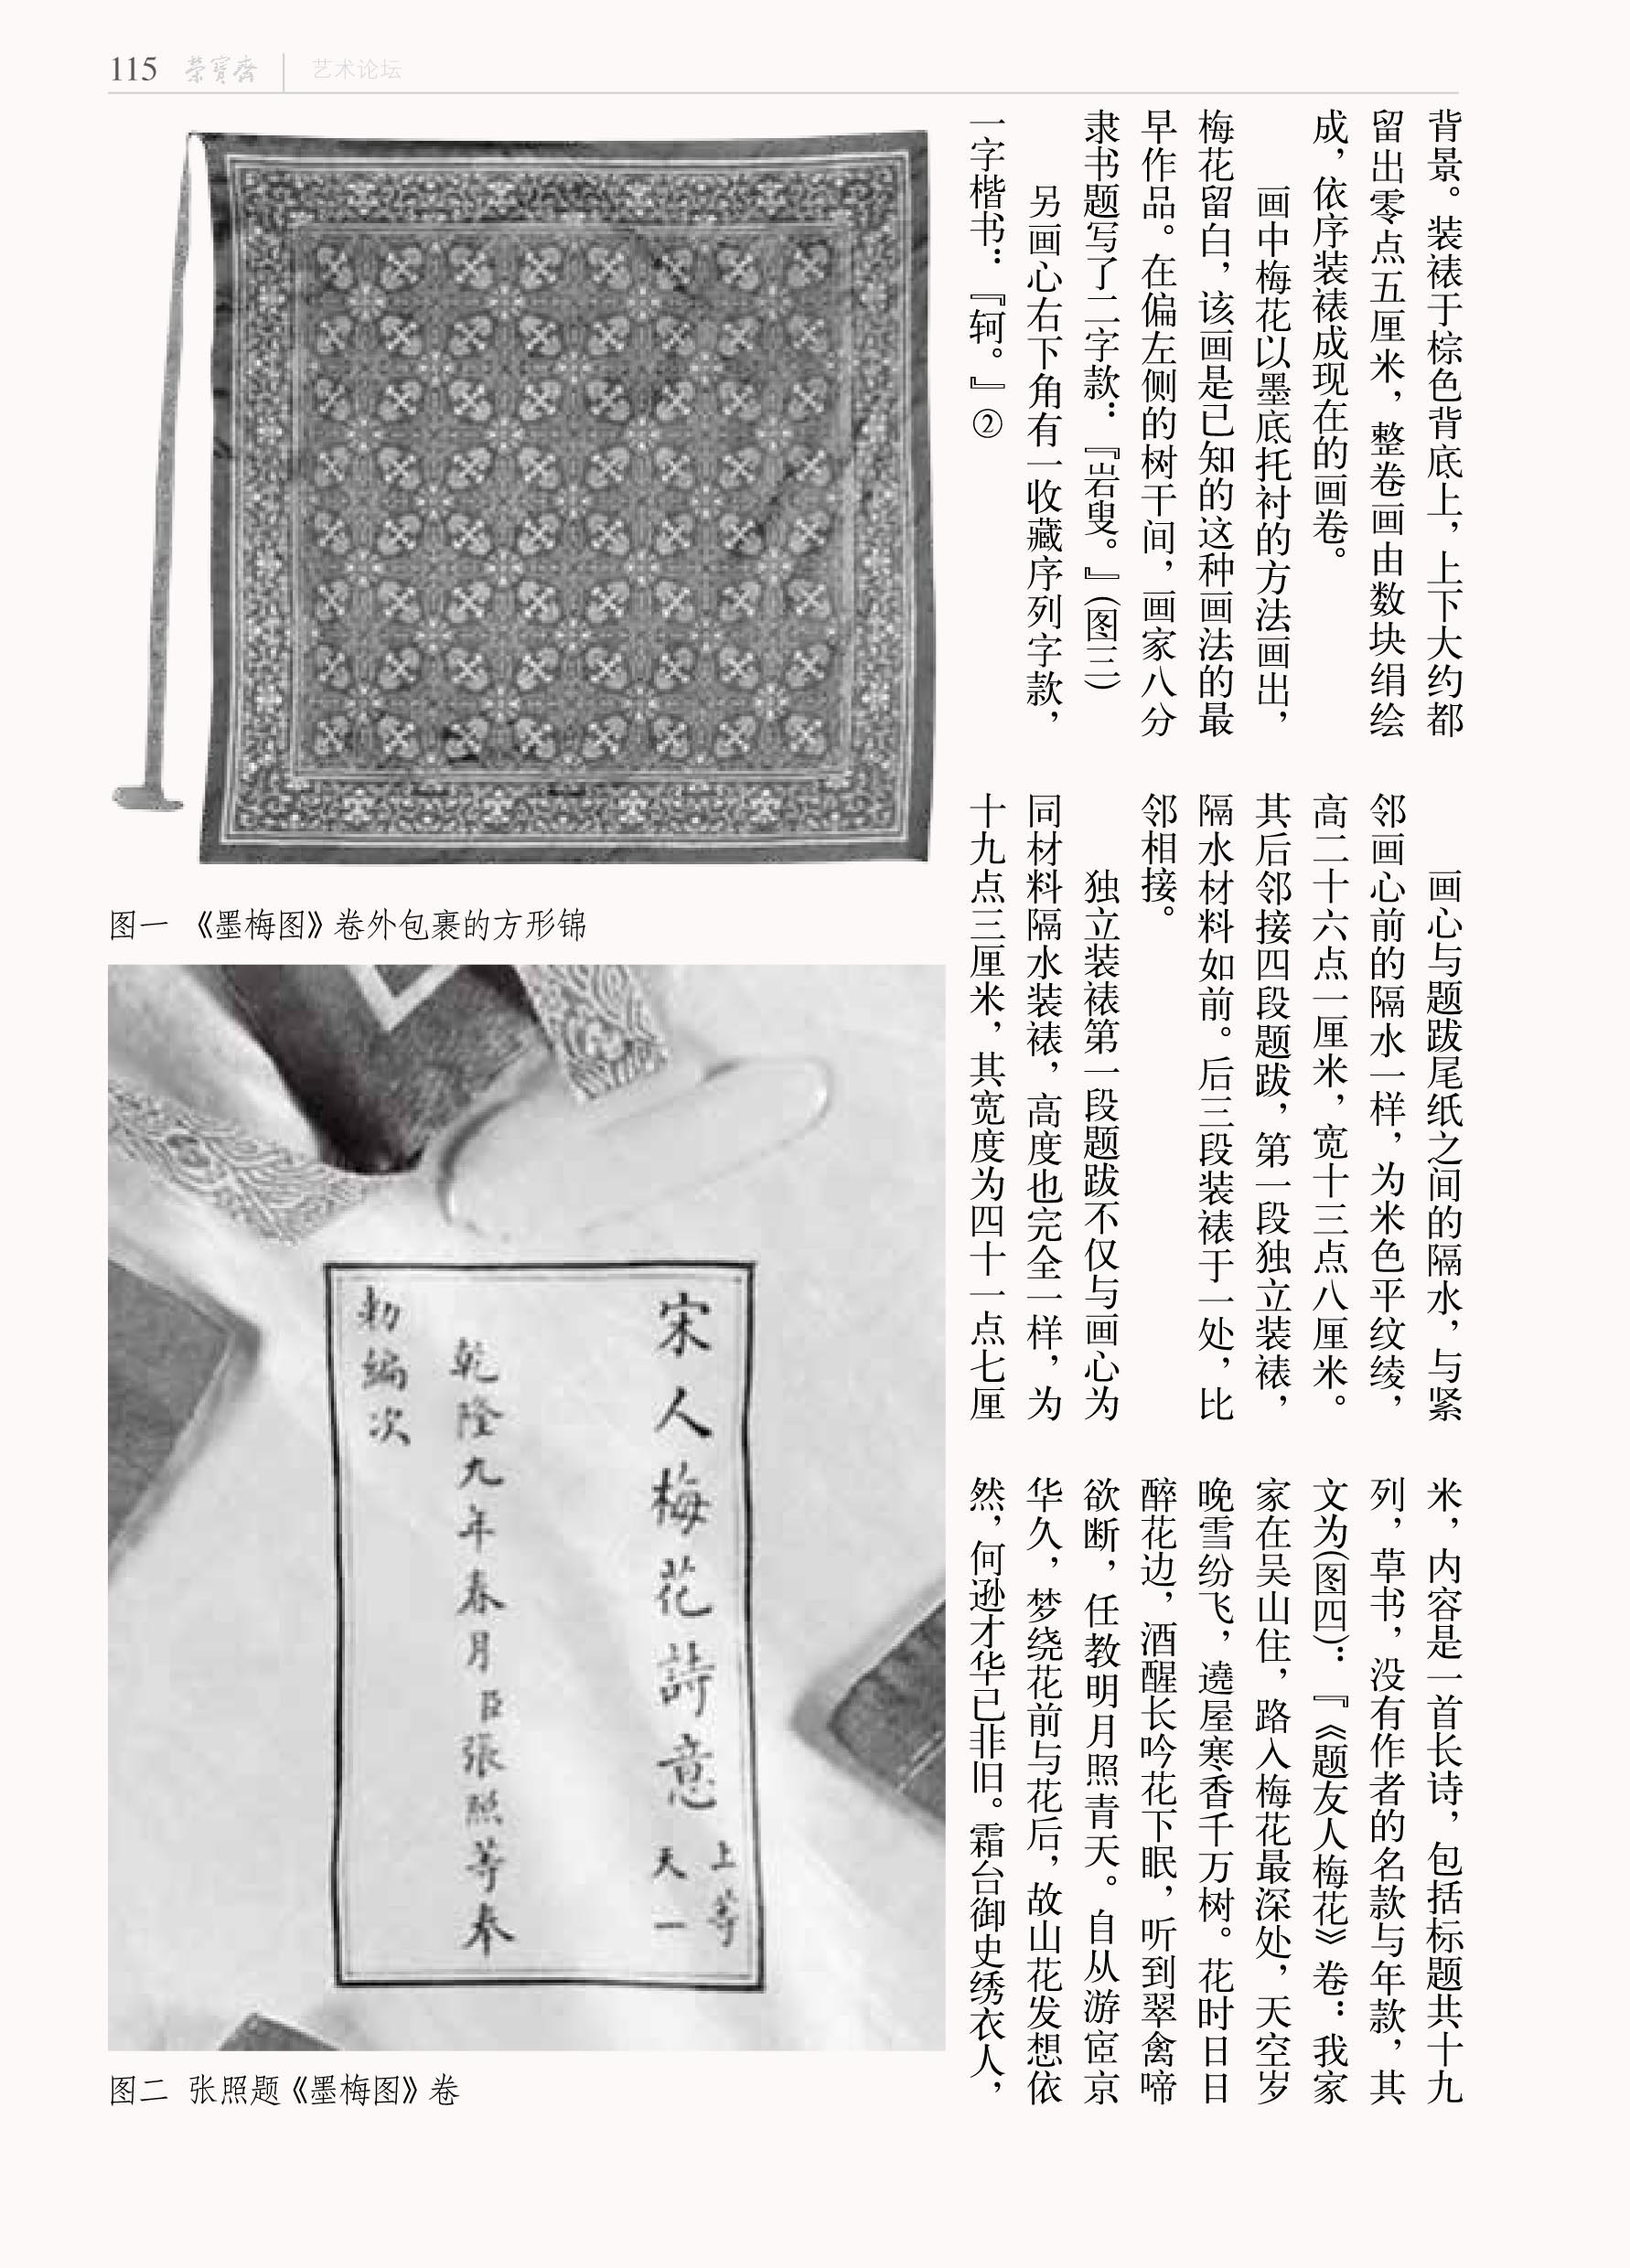 115 荣宝斋 艺术论坛
背景。装裱于棕色背底上，上下大约都
留出零点五厘米，整卷画由数块绢绘
成，依序装裱成现在的画卷。
画中梅花以墨底托衬的方法画出，
梅花留白，该画是已知的这种画法的最
早作品。在偏左侧的树干间，画家八分
隶书题写了二字款：『岩叟。』(图三)
另画心右下角有一收藏序列字款，
一字楷书：『轲。』②
画心与题跋尾纸之间的隔水，与紧
邻画心前的隔水一样，为米色平纹绫，
高二十六点一厘米，宽十三点八厘米。
其后邻接四段题跋，第一段独立装裱，
隔水材料如前。后三段装裱于一处，比
邻相接。
独立装裱第一段题跋不仅与画心为
同材料隔水装裱，高度也完全一样，为
十九点三厘米，其宽度为四十一点七厘
米，内容是一首长诗，包括标题共十九
列，草书，没有作者的名款与年款，其
文为(图四)：『《题友人梅花》卷：我家
家在吴山住，路入梅花最深处，天空岁
晚雪纷飞，遶屋寒香千万树。花时日日
醉花边，酒醒长吟花下眠，听到翠禽啼
欲断，任教明月照青天。自从游宦京
华久，梦绕花前与花后，故山花发想依
然，何逊才华已非旧。霜台御史绣衣人，
图一 《墨梅图》卷外包裹的方形锦
宋人梅花詩意 上等
天一
乾隆九年春月臣張照等奉
勅編次
图二 张照题《墨梅图》卷